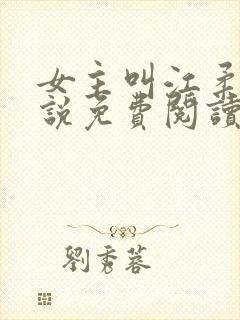 女主叫江柔
說免費閱讀
劉秀蓉